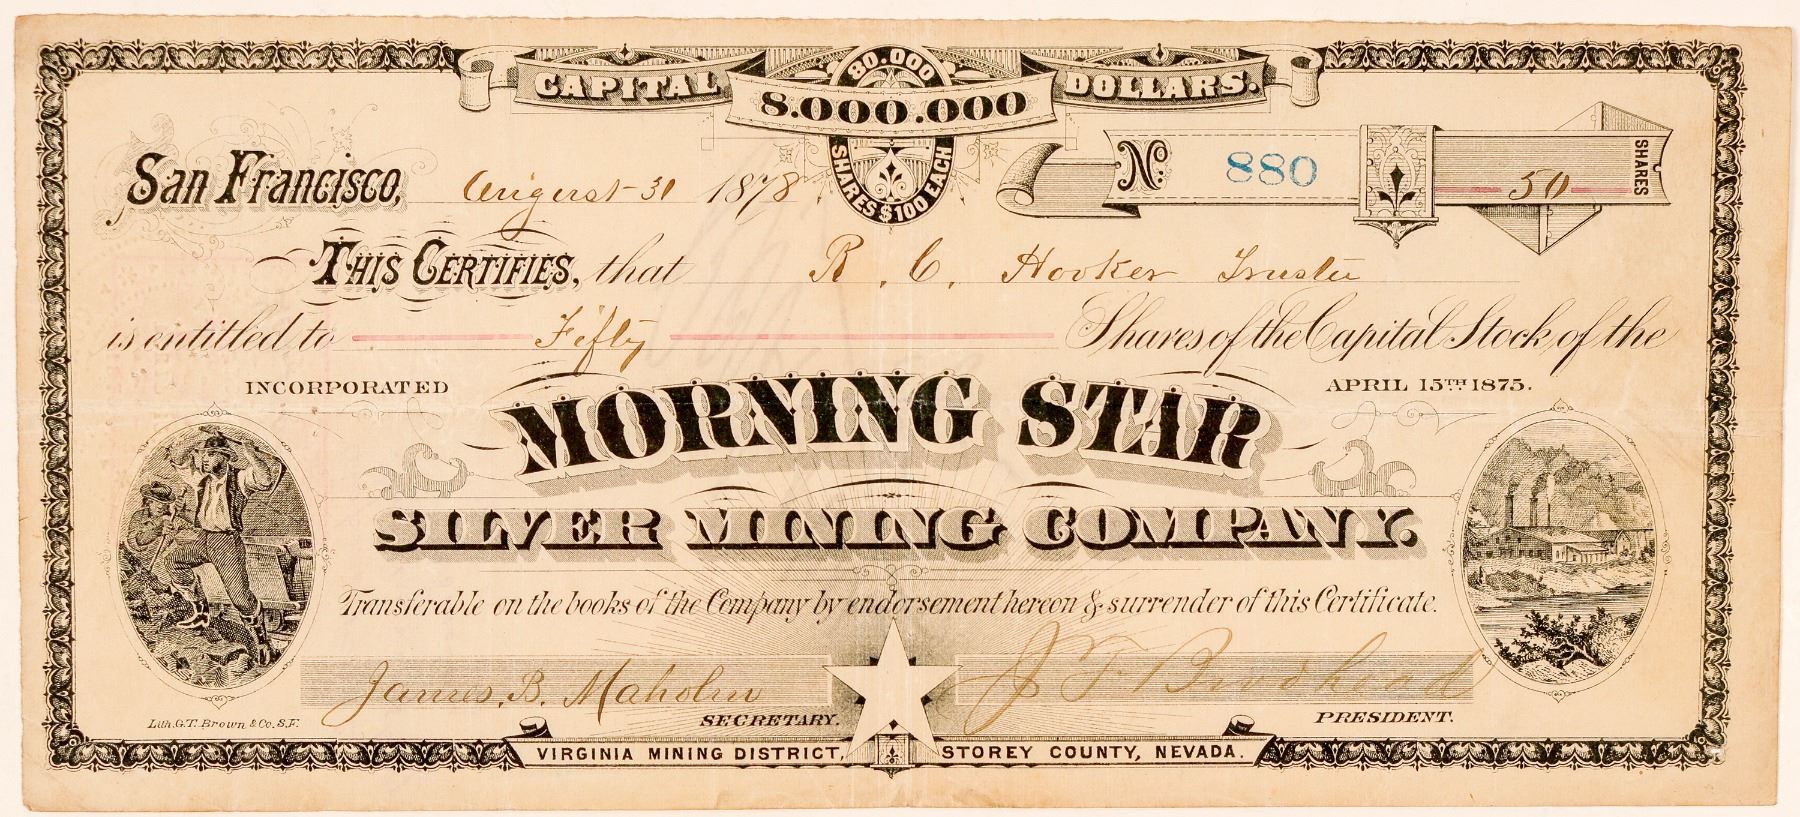 CAPITAL 8.000.000 DOLLARS.
80.000
SHARES $100 EACH
San Francisco, August 31 1878
No. 880 50 SHARES
THIS CERTIFIES, that R. C. Hooker Trustee
is entitled to Fifty Shares of the Capital Stock of the
INCORPORATED APRIL 15TH 1875.
MORNING STAR
SILVER MINING COMPANY.
Transferable on the books of the Company by endorsement hereon & surrender of this Certificate.
James. B. Maholm J T
SECRETARY. PRESIDENT.
Lith. G.T. Brown & Co. S.F.
VIRGINIA MINING DISTRICT, STOREY COUNTY, NEVADA.